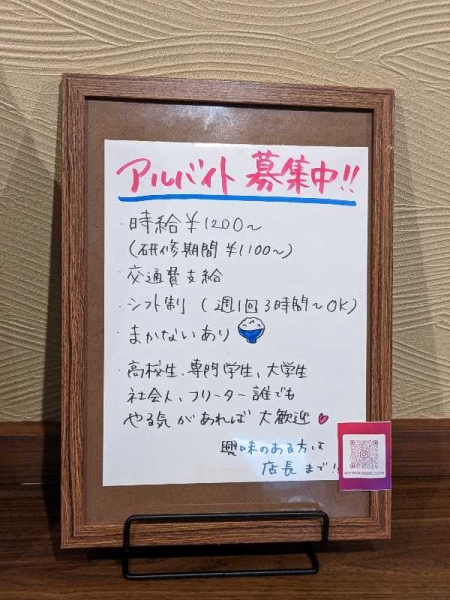 アルバイト 募集中!!
・時給￥1200〜
(研修期間 ￥1100〜)
・交通費支給
・シフト制 ( 週1回 3時間〜OK)
・まかないあり
・高校生、専門学生、大学生
社会人、フリーター 誰でも
やる気があれば 大歓迎♥
興味のある方は
店長まで!!